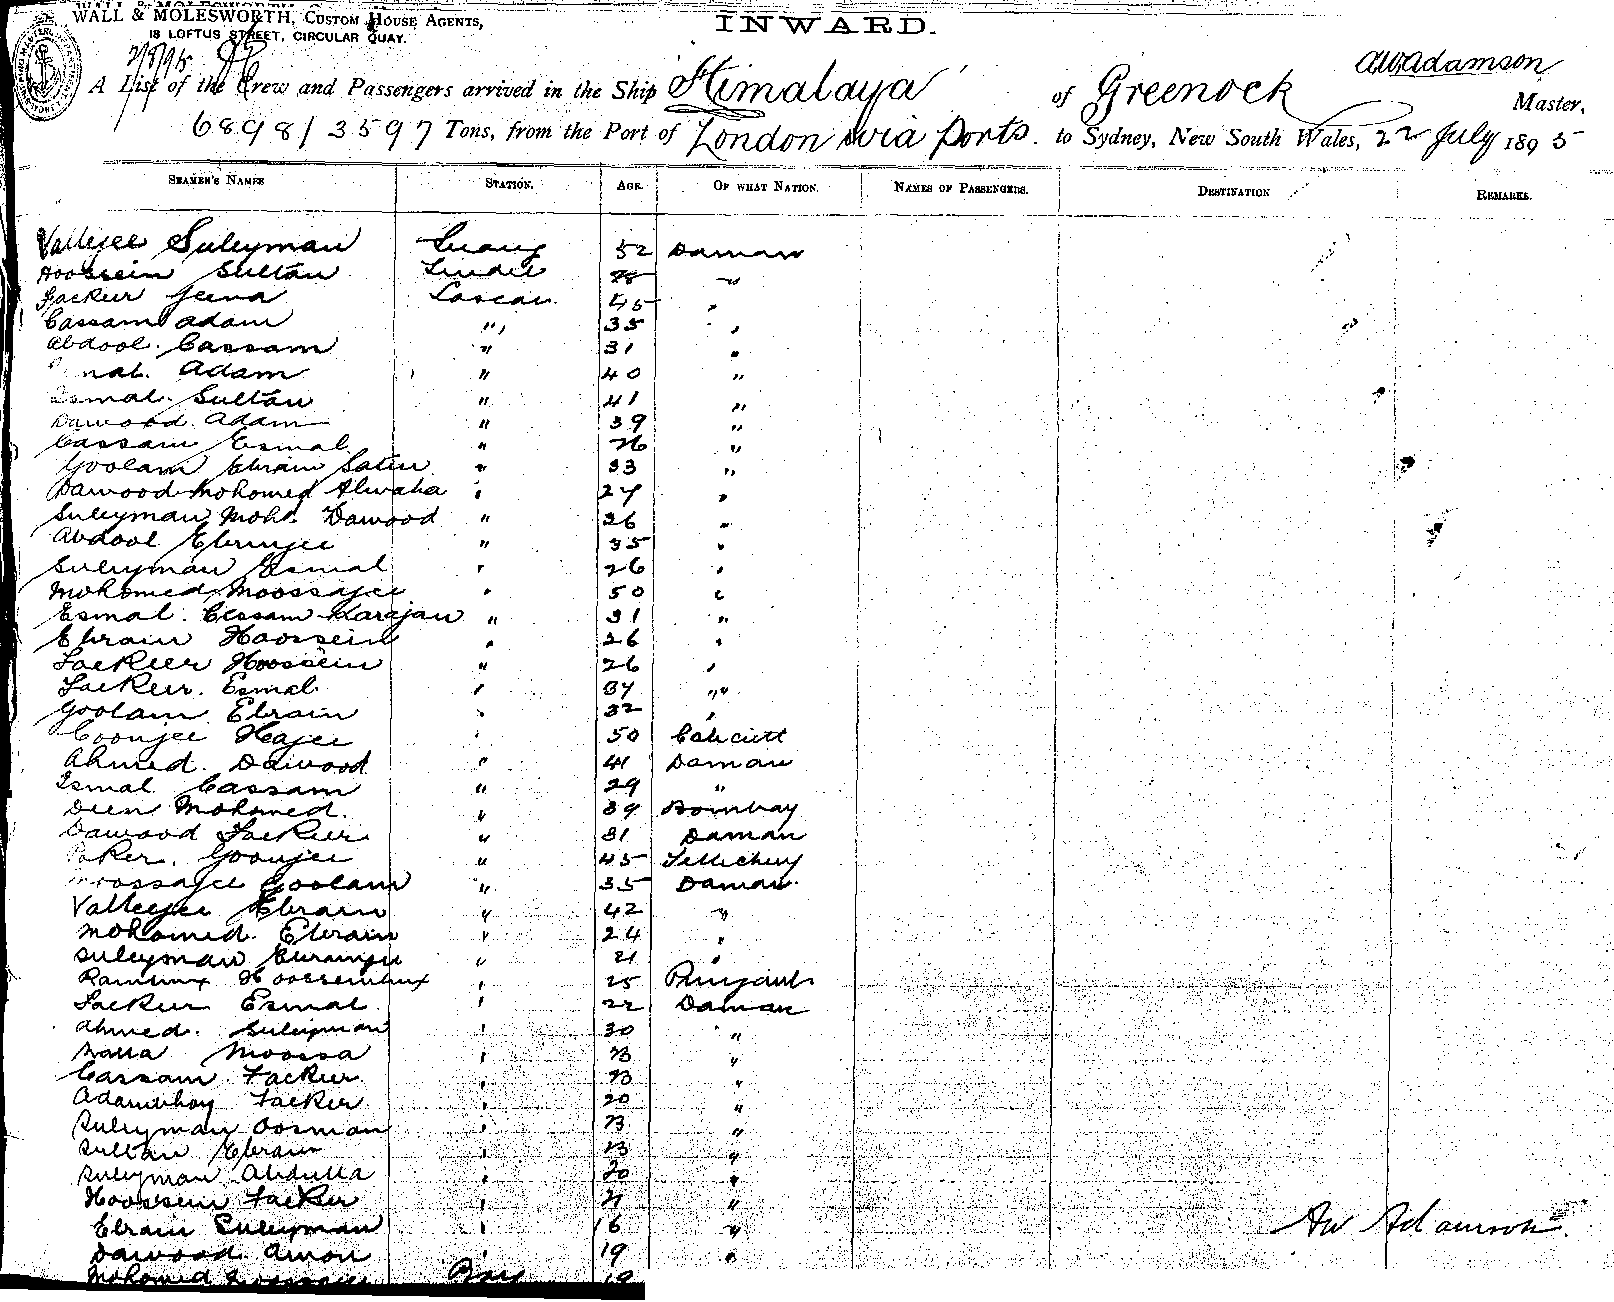 WALL & MOLESWORTH, CUSTOM HOUSE AGENTS,
18 LOFTUS STREET, CIRCULAR QUAY.
INWARD.
A W Adamson
A List of the Crew and Passengers arrived in the Ship Himalaya of Greenock Master,
6898/3597 Tons, from the Port of London via Ports. to Sydney, New South Wales, 22 July 1895
SEAMEN'S NAMES STATION. AGE. OF WHAT NATION. NAMES OF PASSENGERS. DESTINATION REMARKS.
Vallejee Suleyman 52 Daman
Hoossein Sultan 28 "
Fackeer Jeena Lascar 45 "
Cassam Adam " 35 "
Abdool Cassam " 31 "
Adam " 40 "
Esmal Sultan " 41 "
Dawood Adam " 39 "
Cassam Esmal " 26 "
Goolam Ebraim " 33 "
Dawood Mohomed " "
Suleyman Mohd. Dawood " 26 "
Abdool Ebramjee " 35 "
Suleyman Esmal " 26 "
Mohomed Moossajee " 50 "
Esmal Cassam " 31 "
Ebraim Hoossein " 26 "
Fackeer Hoossein " 26 "
Fackeer Esmal " 37 "
Goolam Ebraim " 32 "
Coonjee Hajee " 50 Calicutt
Ahmed Dawood " 41 Daman
Esmal Cassam " 29 "
Deen Mohomed. " 39 Bombay
Dawood Fackeer " 31 Daman
Goonjee " 45 Tellichery
Moossajee Goolam " 35 Daman
Vallejee Ebraim " 42 "
Mohomed Ebraim " 24 "
Suleyman Ebramjee " 21 "
" 25 Punjaub
Fackeer Esmal " 22 Daman
Ahmed Suleyman " 30 "
Moossa " 23 "
Cassam Fackeer " 23 "
Adambhoy Fackeer " 20 "
Suleyman Oosman " 23 "
Sultan Ebraim " 23 "
Suleyman Abdulla " 20 "
Hoossein Fackeer " 21 "
Ebraim Suleyman " 16 "
Dawood Amon " 19 "
AW Adamson
Mohomed Moossajee Boy 19